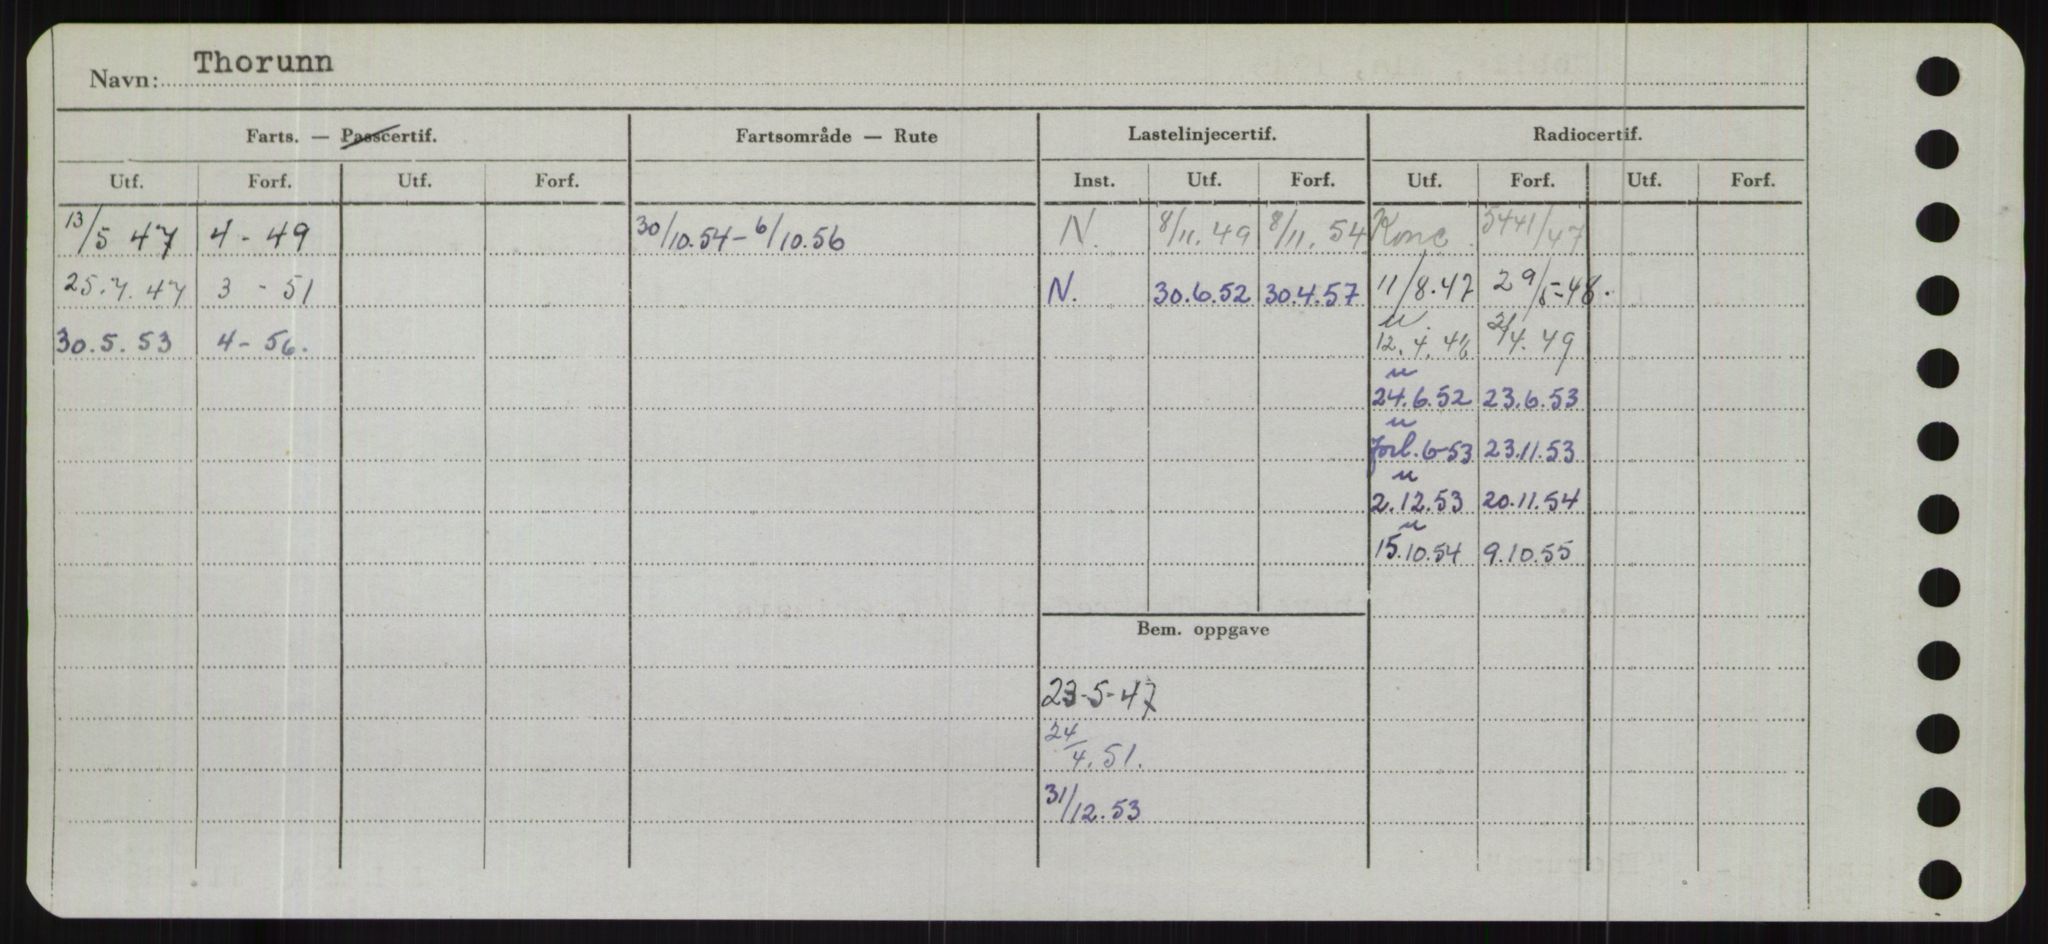 Navn: Thorunn
Farts. — Passcertif. Fartsområde — Rute Lastelinjecertif. Radiocertif.
Utf. Forf. Utf. Forf. Inst. Utf. Forf. Utf. Forf. Utf. Forf.
13/5 47 4 - 49 30/10.54 - 6/10.56 N. 8/11. 49 8/11. 54 Konc. 5441/47
25.7.47 3 - 51 N. 30.6.52 30.4.57 11/8.47 29/5-48.
30.5.53 4 - 56. 12.4.48 2/4.49
24.6.52 23.6.53
Forl. 6-53 23.11.53
2.12.53 20.11.54
15.10.54 9.10.55
Bem. oppgave
23-5-47
24/4.51.
31/12.53